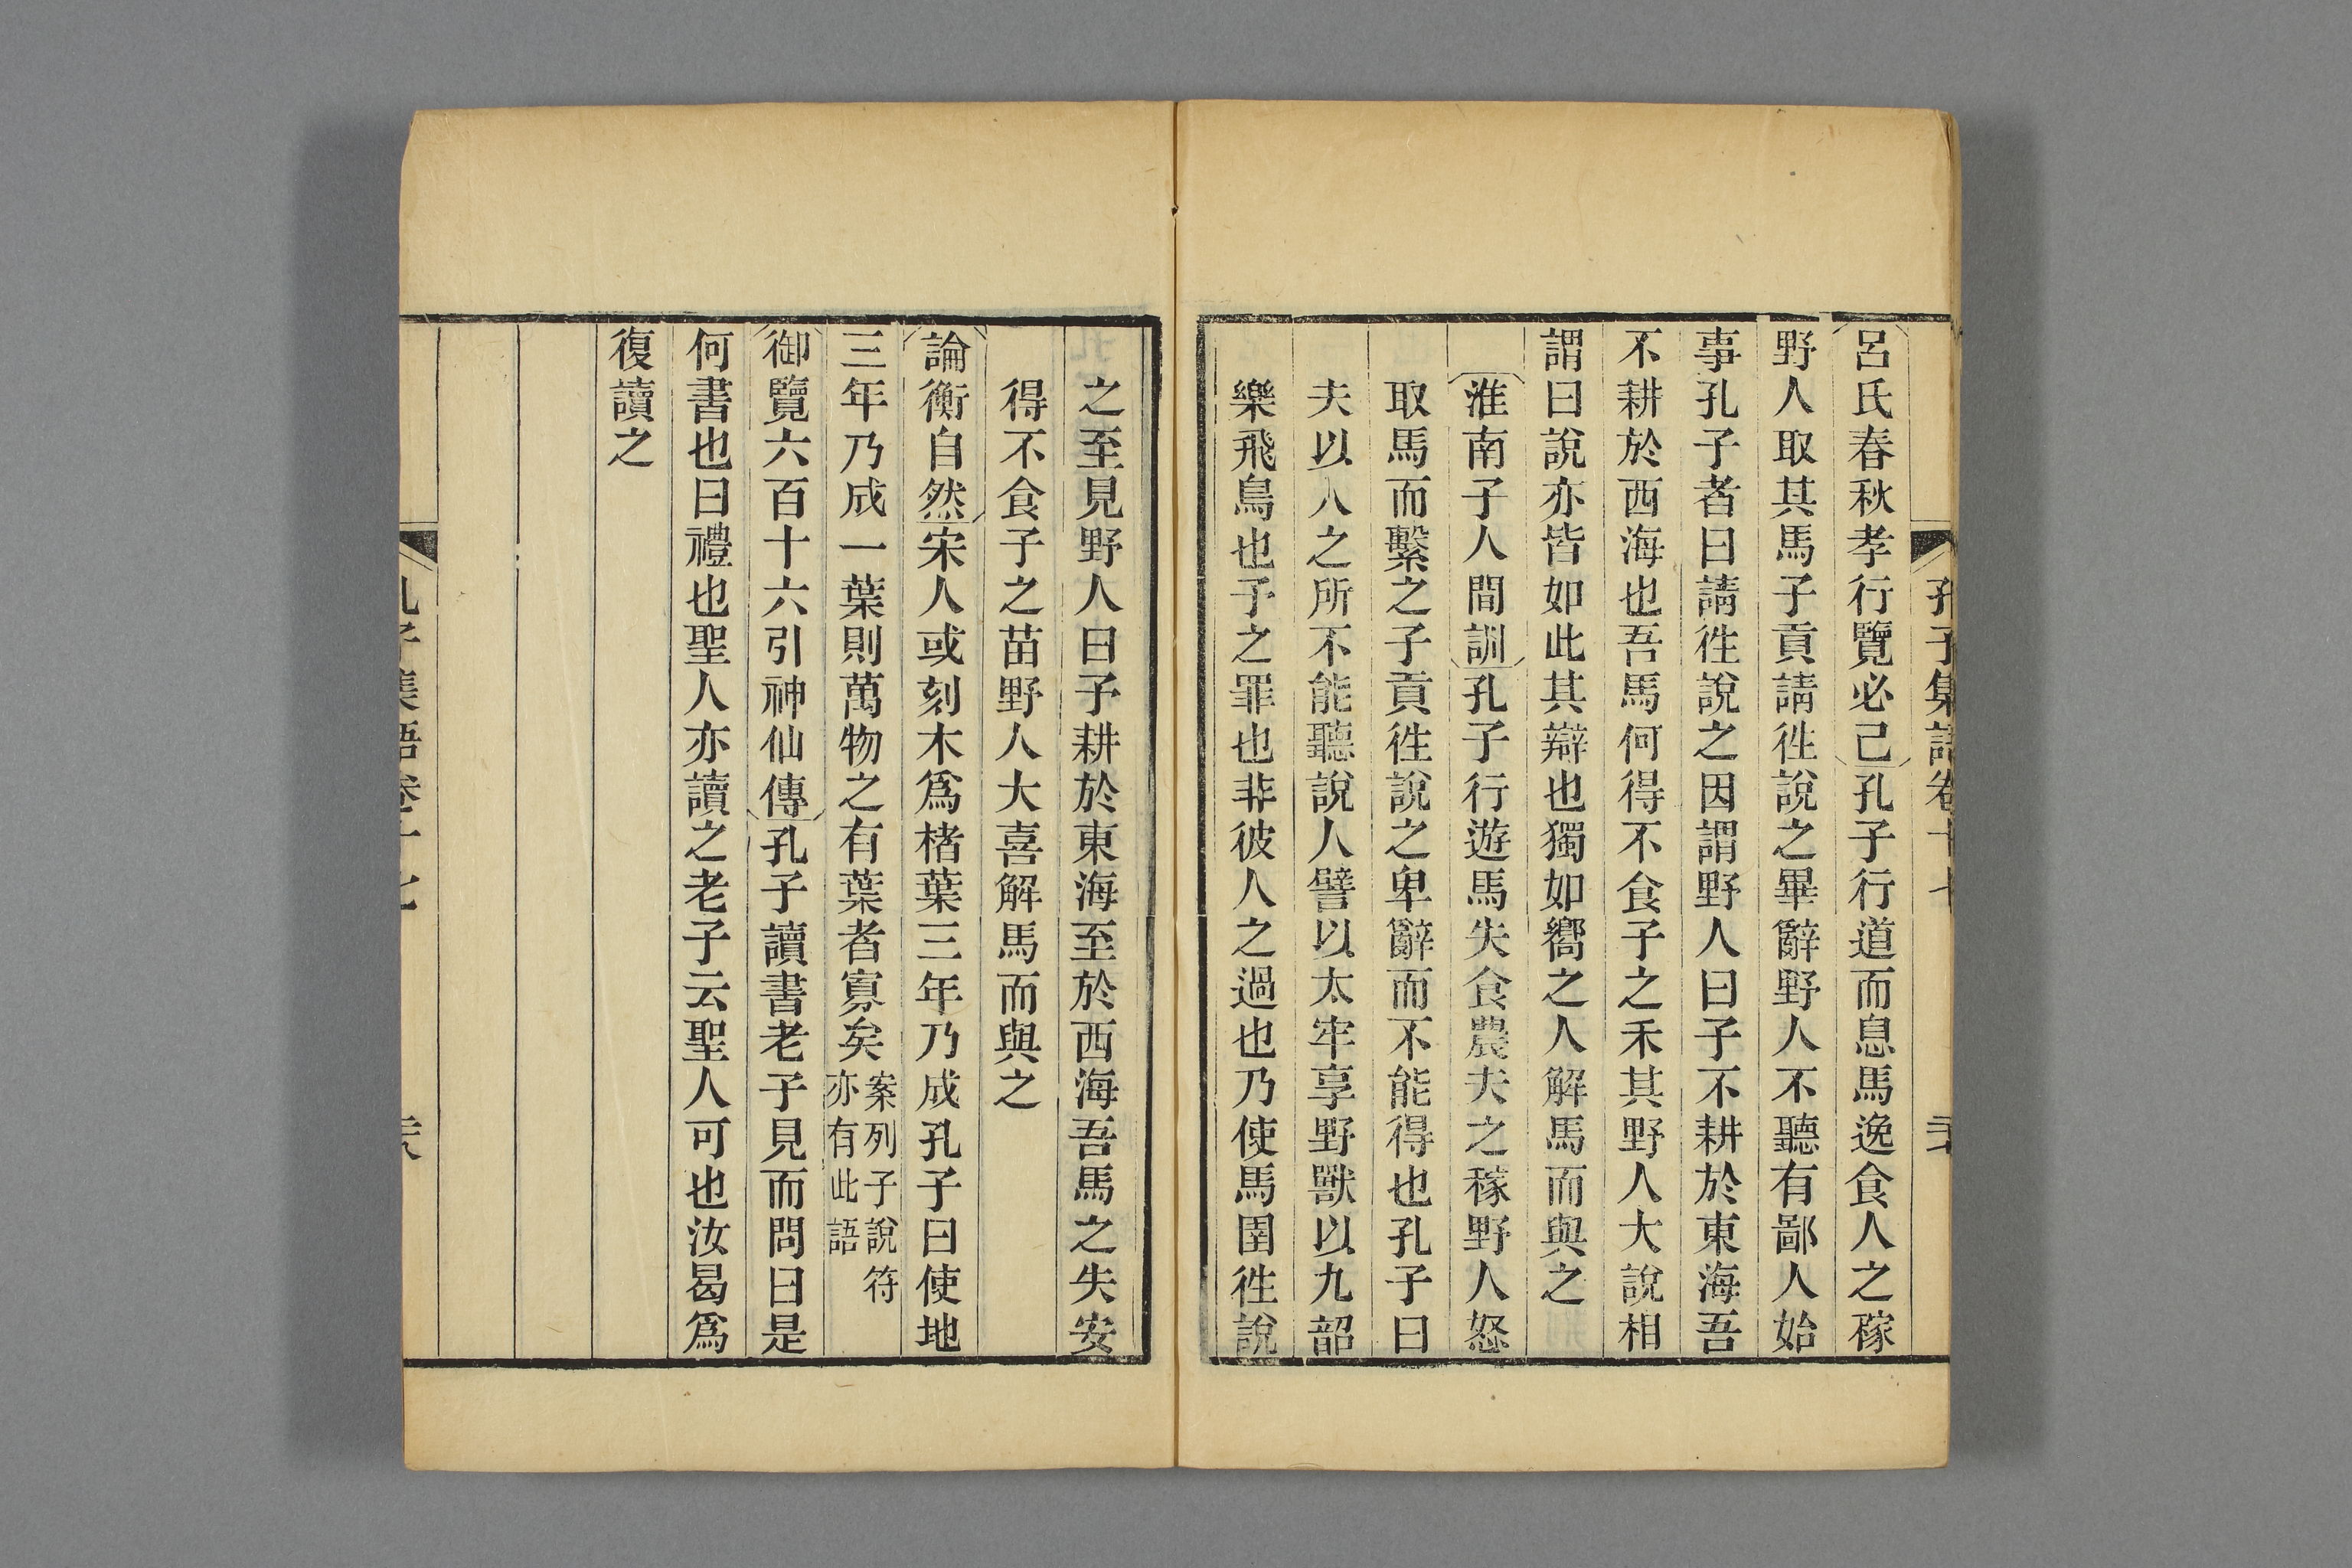 孔子集語卷十七
呂氏春秋孝行覽必己孔子行道而息馬逸食人之稼
野人取其馬子貢請徃說之畢辭野人不聽有鄙人始
事孔子者曰請徃說之因謂野人曰子不耕於東海吾
不耕於西海也吾馬何得不食子之禾其野人大說相
謂曰說亦皆如此其辯也獨如嚮之人解馬而與之
淮南子人間訓孔子行遊馬失食農夫之稼野人怒
取馬而繫之子貢徃說之卑辭而不能得也孔子曰
夫以人之所不能聽說人譬以太牢享野獸以九韶
樂飛鳥也予之罪也非彼人之過也乃使馬圉徃說
之至見野人曰予耕於東海至於西海吾馬之失安
得不食子之苗野人大喜解馬而與之
論衡自然宋人或刻木爲楮葉三年乃成孔子曰使地
三年乃成一葉則萬物之有葉者寡矣案列子說符
亦有此語
御覽六百十六引神仙傳孔子讀書老子見而問曰是
何書也曰禮也聖人亦讀之老子云聖人可也汝曷爲
復讀之
孔子集語卷十七